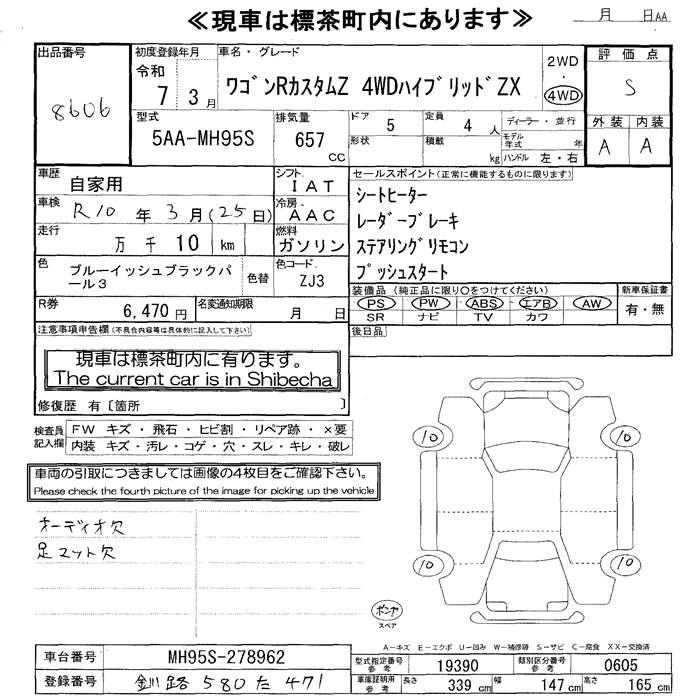 ≪現車は標茶町内にあります≫
月 日AA
出品番号
8606
初度登録年月
令和
7 3月
車名・グレード
ワゴンRカスタムZ 4WDハイブリッドZX
2WD
・
4WD
評価点
S
外装 内装
A A
型式
5AA-MH95S
排気量
657
CC
ドア
5
定員
4 人
形状
積載
kg
ディーラー・並行
モデル年式 年
ハンドル 左・右
車歴
自家用
シフト
IAT
車検
R10年3月(25日)
冷房
AAC
走行
万 千 10 km
燃料
ガソリン
色
ブルーイッシュブラックパール3
色替
色コード
ZJ3
R券
6,470円
名変通知期限
月 日
セールスポイント(正常に機能するものに限ります)
シートヒーター
レーダーブレーキ
ステアリングリモコン
プッシュスタート
装備品(純正品に限り○をつけてください)
PS PW ABS エアB AW
SR ナビ TV カワ
新車保証書
有・無
後日品
注意事項申告欄(不具合内容等は具体的に記入して下さい)
現車は標茶町内に有ります。
The current car is in Shibecha
修復歴 有〔箇所 〕
検査員記入欄
FW キズ・飛石・ヒビ割・リペア跡・×要
内装 キズ・汚レ・コゲ・穴・スレ・キレ・破レ
車両の引取につきましては画像の4枚目をご確認下さい。
Please check the fourth picture of the image for picking up the vehicle
オーディオ欠
足マット欠
10
10
10
10
ポンプ
スペア
A-キズ E-エクボ U-凹み W-補修跡 S-サビ C-腐食 XX-交換済
車台番号
MH95S-278962
登録番号
釧路 580 た 471
型式指定番号
参考
19390
類別区分番号
参考
0605
車庫証明用
参考
長さ
339 cm
幅
147 cm
高さ
165 cm